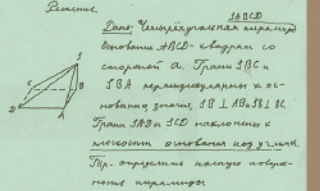 Решение.
SABCD
Дано: Четырёхугольная пирамида
Основание ABCD - квадрат со
стороной a. Грани SBC и
SBA перпендикулярны к ос-
нованию, значит, SB ⊥ AB и SB ⊥ BC
Грани SAD и SCD наклонены к
плоскости основания под углом
Тр. определить полную поверх-
ность пирамиды
S
C
B
D
A